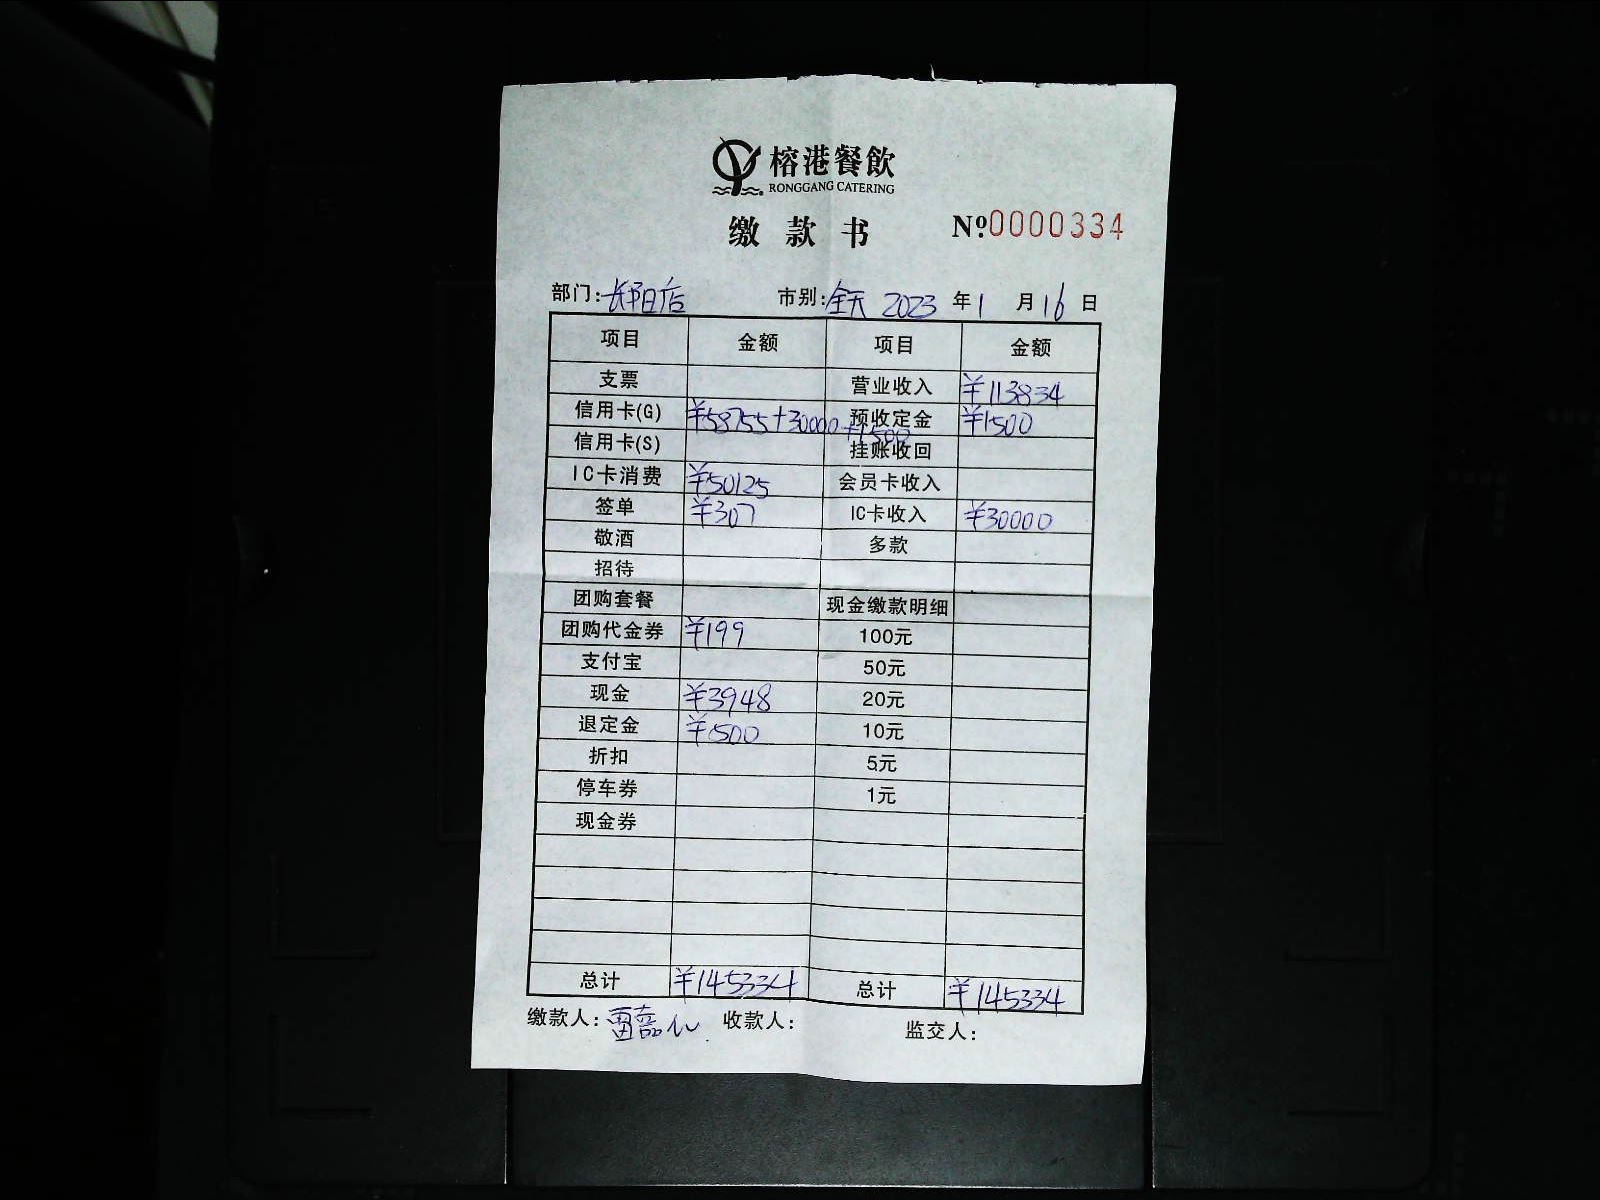 榕港餐飲
RONGGANG CATERING
缴款书 Nº0000334
部门: 市别:全天 2023 年 1 月 16 日
项目 金额 项目 金额
支票 营业收入 ¥113834
信用卡(G) ¥58755+30000+1500 预收定金 ¥1500
信用卡(S) 挂账收回
IC卡消费 ¥50125 会员卡收入
签单 ¥307 IC卡收入 ¥30000
敬酒 多款
招待
团购套餐 现金缴款明细
团购代金券 ¥199 100元
支付宝 50元
现金 ¥3948 20元
退定金 ¥500 10元
折扣 5元
停车券 1元
现金券
总计 ¥145334 总计 ¥145334
缴款人: 收款人: 监交人: